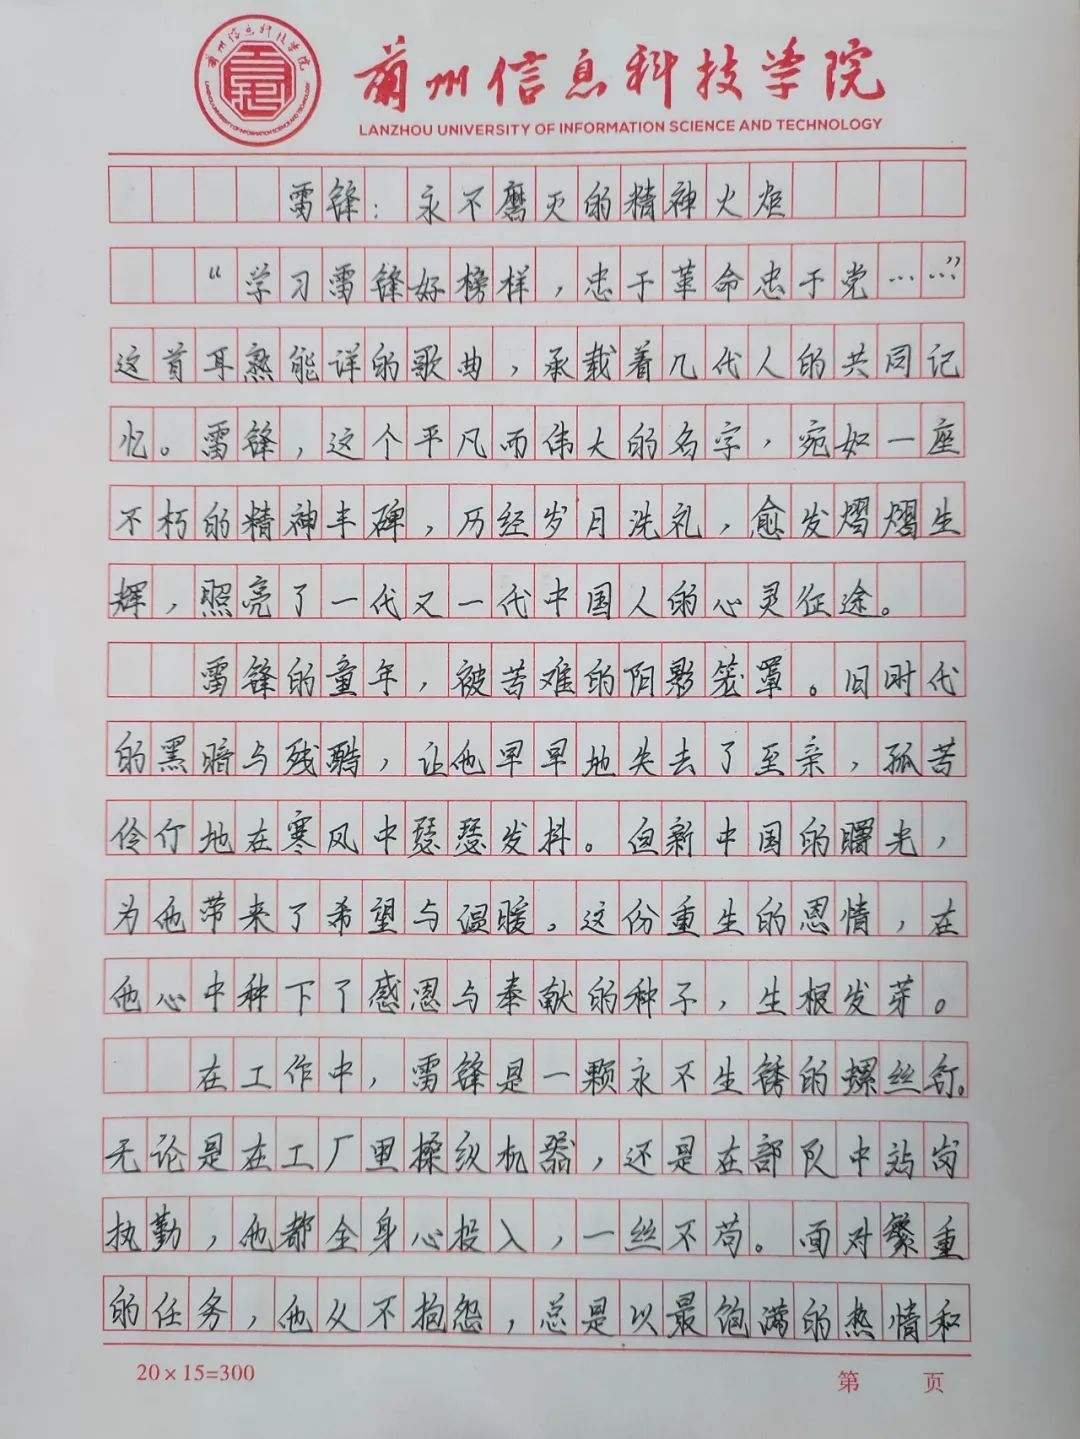 兰州信息科技学院
兰州信息科技学院
LANZHOU UNIVERSITY OF INFORMATION SCIENCE AND TECHNOLOGY
LANZHOU UNIVERSITY OF INFORMATION SCIENCE AND TECHNOLOGY
雷锋：永不磨灭的精神火炬
“学习雷锋好榜样，忠于革命忠于党……”
这首耳熟能详的歌曲，承载着几代人的共同记
忆。雷锋，这个平凡而伟大的名字，宛如一座
不朽的精神丰碑，历经岁月洗礼，愈发熠熠生
辉，照亮了一代又一代中国人的心灵征途。
雷锋的童年，被苦难的阴影笼罩。旧时代
的黑暗与残酷，让他早早地失去了至亲，孤苦
伶仃地在寒风中瑟瑟发抖。但新中国的曙光，
为他带来了希望与温暖。这份重生的恩情，在
他心中种下了感恩与奉献的种子，生根发芽。
在工作中，雷锋是一颗永不生锈的螺丝钉。
无论是在工厂里操纵机器，还是在部队中站岗
执勤，他都全身心投入，一丝不苟。面对繁重
的任务，他从不抱怨，总是以最饱满的热情和
20×15=300
第 页